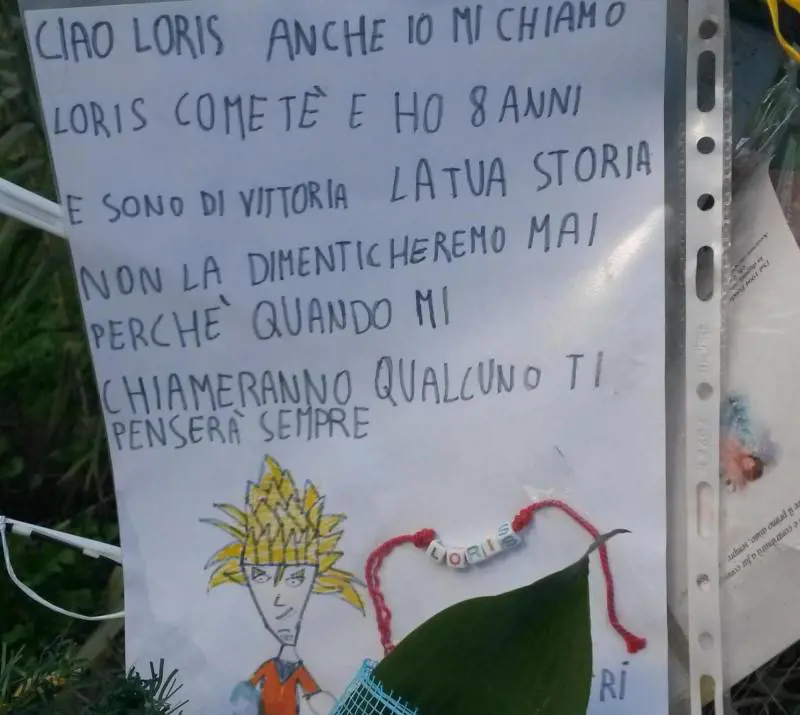 CIAO LORIS ANCHE IO MI CHIAMO
LORIS COME TÈ E HO 8 ANNI
E SONO DI VITTORIA LA TUA STORIA
NON LA DIMENTICHEREMO MAI
PERCHÈ QUANDO MI
CHIAMERANNO QUALCUNO TI
PENSERÀ SEMPRE
LORIS
RI